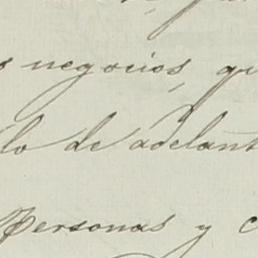 s negocios, qu
lo de adelant
Personas y c